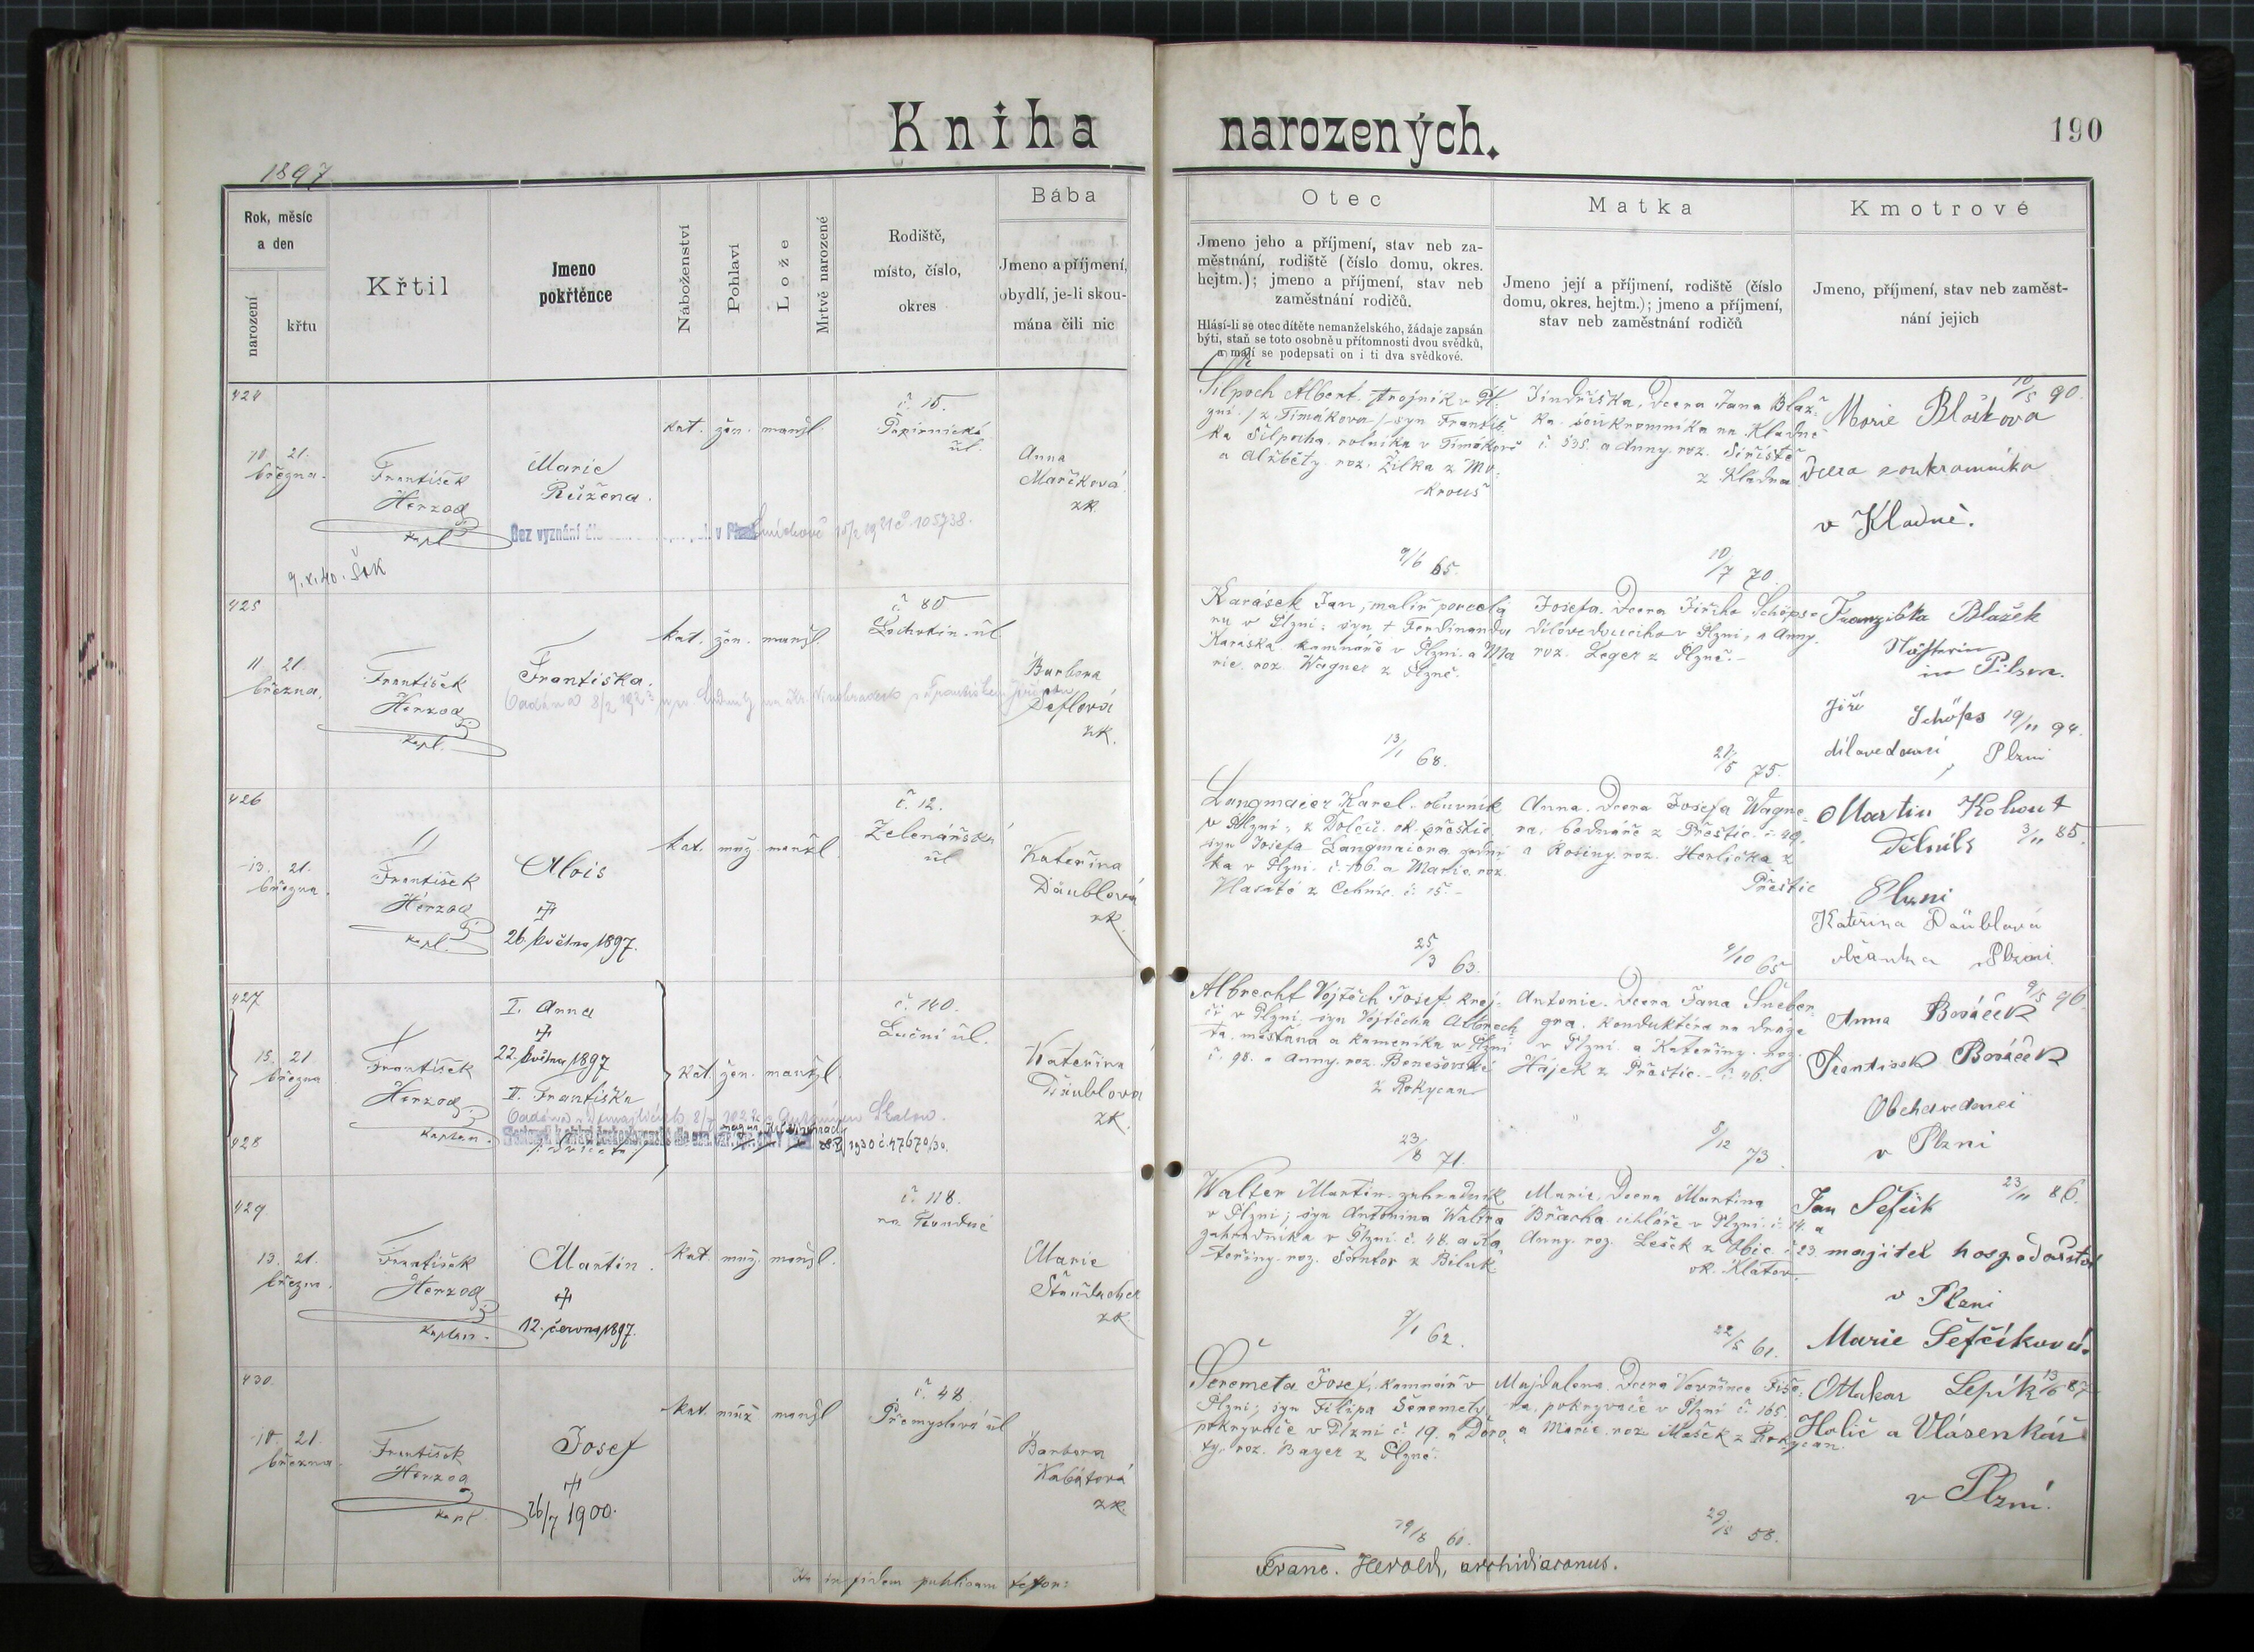 Kniha narozených.
190
1897
Rok, měsíc
a den
narození
křtu
Křtil
Jmeno
pokřtěnce
Náboženství
Pohlaví
Lože
Mrtvě narozené
Rodiště,
místo, číslo,
okres
Bába
Jmeno a příjmení,
obydlí, je-li skou-
mána čili nic
Otec
Jmeno jeho a příjmení, stav neb za-
městnání, rodiště (číslo domu, okres.
hejtm.); jmeno a příjmení, stav neb
zaměstnání rodičů.
Hlásí-li se otec dítěte nemanželského, žádaje zapsán
býti, staň se toto osobně u přítomnosti dvou svědků,
a mají se podepsati on i ti dva svědkové.
Matka
Jmeno její a příjmení, rodiště (číslo
domu, okres. hejtm.); jmeno a příjmení,
stav neb zaměstnání rodičů
Kmotrové
Jmeno, příjmení, stav neb zaměst-
nání jejich
424
10. 21.
března.
František
Herzog
kapl.
Marie
Růžena.
kat. žen. manžl.
č. 15.
Papírnická
úl.
Anna
Maříková
zk.
Bez vyznání
Smíchově 15/2 1921 č. 105738.
9.X.40. Šak
Šilpoch Albert, strojník v Pl-
zni /z Timákova/ syn Františ-
ka Šilpocha, rolníka v Timákově
a Alžběty roz. Žilka z Mo-
krouš
9/6 65.
Jindřiška, dcera Jana Blaž-
ka, soukromníka na Kladně
č 535 a Anny roz. Siřiště
z Kladna
10/7 70.
Marie Blažkova 10/5 90.
dcera soukromníka
v Kladně.
425
11 21.
března.
František
Herzog
kapl.
Františka.
kat. žen. manžl.
č 80
Lochotín. úl
Barbora
Deflová
zk.
Oddána 8/2 1923
Karásek Jan, malíř porcelá
nu v Plzni; syn + Ferdinanda
Karáska kamnáře v Plzni a Ma
rie roz. Wagner z Plzně.
13/1 68.
Josefa, dcera Jiřího Schöpse
dílovedoucího v Plzni, a Anny
roz. Leger z Plzně.
21/5 75.
Franziska Blažek
in Pilsen.
Jiří Schöps 19/11 94.
dílovedoucí Plzni
426
13. 21.
března.
František
Herzog
kapl.
Alois
26. května 1897.
kat. muž. manžl.
č. 12.
Zelenářská
úl
Kateřina
Däublová
zk.
Langmaier Karel, obuvník
v Plzni, z Dolců ok. přeštic.
syn Josefa Langmaiera
ka v Plzni č. 106. a Marie roz.
Vlasatá z Cehnic č. 15.
25/3 63.
Anna, dcera Josefa Wagne-
ra, bednáře z Přeštic č. 49.
a Rosiny roz. Herlička z
Přeštic
4/10 65
Martin Kohout
Dělník 3/11 85.
Plzni
Kateřina Däublová
občanka Plzni
427.
428
15. 21
března
František
Herzog.
kaplan.
I. Anna
22. května 1897
II. Františka
kat. žen. manžl.
č. 140.
Luční úl.
Kateřina
Däublová
zk.
1930 č. 47670/30.
Albrecht Vojtěch Josef, krej-
čí v Plzni, syn Vojtěcha Albrech
ta, měšťana a kameníka v Plzni
č. 98. a Anny roz. Benešovské
z Rokycan
23/8 71.
Antonie, dcera Jana Šneber-
gra, konduktéra na dráze
v Plzni a Kateřiny roz.
Hájek z Přeštic č. 46.
5/12 73
Anna Bosáček 9/5 96
Frantisek Bosáček
Obchdvedoucí
v Plzni
429.
13. 21.
března.
František
Herzog
kaplan.
Martin.
12. června 1897.
kat. muž. manžl.
č. 118.
na Roudné
Marie
Štaudacher
zk.
Walter Martin, zahradník
v Plzni; syn Antonína Waltra
zahradníka v Plzni č. 48. a Ka
teřiny roz. Šantor z Biluk
7/1 62.
Marie, dcera Martina
Břacha uhlíře v Plzni č. 14. a
Anny roz. Lešek z Obic č 23.
ok. Klatov.
22/5 61.
Jan Šefčík 23/11 86.
majitel hospodářství
v Plzni
Marie Šefčíková.
430.
10. 21.
března.
František
Herzog
kapl.
Josef
26/7 1900.
kat. muž manžl
č. 48.
Přemyslova úl
Barbora
Kabátová
zk.
Šeremeta Josef, kamnář v
Plzni; syn Filipa Šeremety
pokryvače v Plzni č 19. a Doro
ty roz. Bayer z Plzně.
19/8 60.
Majdalena, dcera Vavřince Fiše-
ra, pokryvače v Plzni č. 165.
a Marie roz. Mašek z Rokycan.
29/5 58.
Ottokar Lepík 13/6 87
Holič a Vlásenkář
v Plzni.
Ita in fidem publicam testor:
Franc. Herold, archidiaconus.